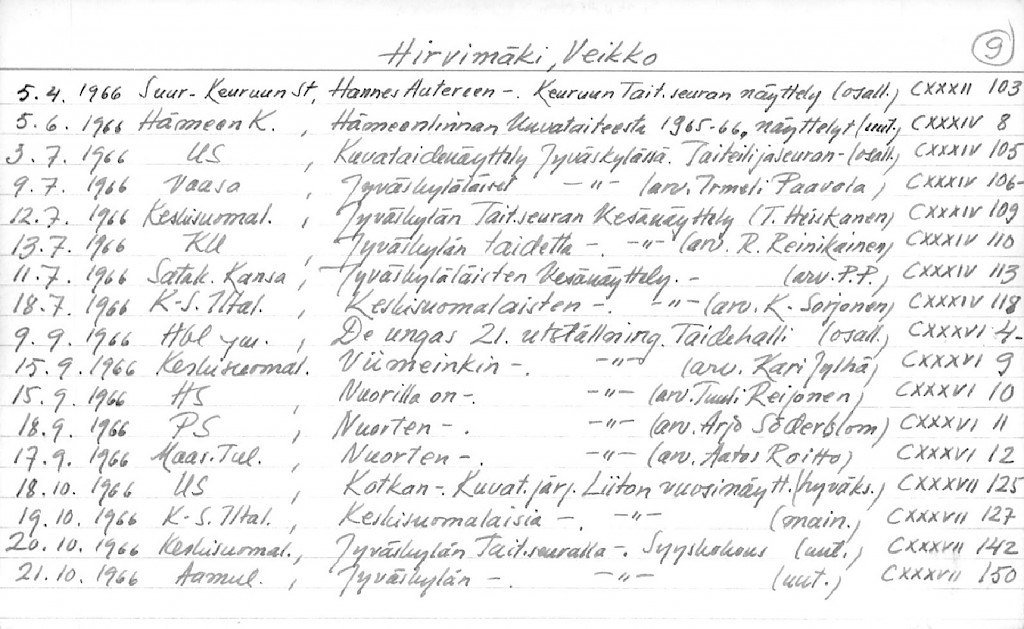 Hirvimäki, Veikko 9
5.4. 1966 Suur-Keuruun St, Hannes Autereen -. Keuruun Tait.seuran näyttely (osall.) CXXXII 103
5.6. 1966 Hämeen K. , Hämeenlinnan Kuvataiteesta 1965-66, näyttelyt (uut.) CXXXIV 8
3.7. 1966 US , Kuvataidenäyttely Jyväskylässä. Taiteilijaseuran - (osall.) CXXXIV 105
9.7. 1966 Vaasa , Jyväskyläläiset -"- (arv. Irmeli Paavola) CXXXIV 106-
12.7. 1966 Keskisuomal. , Jyväskylän Tait.seuran Kesänäyttely (T. Heiskanen) CXXXIV 109
13.7. 1966 KU , Jyväskylän taidetta -. -"- (arv. R. Reinikainen) CXXXIV 110
11.7. 1966 Satak. Kansa , Jyväskyläläisten Kesänäyttely. - (arv. P.P.) CXXXIV 113
18.7. 1966 K-S. Iltal. , Keskisuomalaisten -. -"- (arv. K. Sorjonen) CXXXIV 118
9.9. 1966 Hbl ym. , De ungas 21. utställning. Taidehalli (osall.) CXXXVI 4-
15.9. 1966 Keskisuomal. Viimeinkin -. -"- (arv. Kari Jylhä) CXXXVI 9
15.9. 1966 HS , Nuorilla on -. -"- (arv. Tuuli Reijonen) CXXXVI 10
18.9. 1966 PS , Nuorten -. -"- (arv. Arjo Söderblom) CXXXVI 11
17.9. 1966 Maas.Tul. , Nuorten -. -"- (arv. Aatos Roitto) CXXXVI 12
18.10. 1966 US , Kotkan -. Kuvat.järj. Liiton vuosinäytt. (hyväks.) CXXXVII 125
19.10. 1966 K-S. Iltal. , Keskisuomalaisia -. -"- (main.) CXXXVII 127
20.10. 1966 Keskisuomal., Jyväskylän Tait.seuralla -. Syyskokous (uut.) CXXXVII 142
21.10. 1966 Aamul. , Jyväskylän -. -"- (uut.) CXXXVII 150